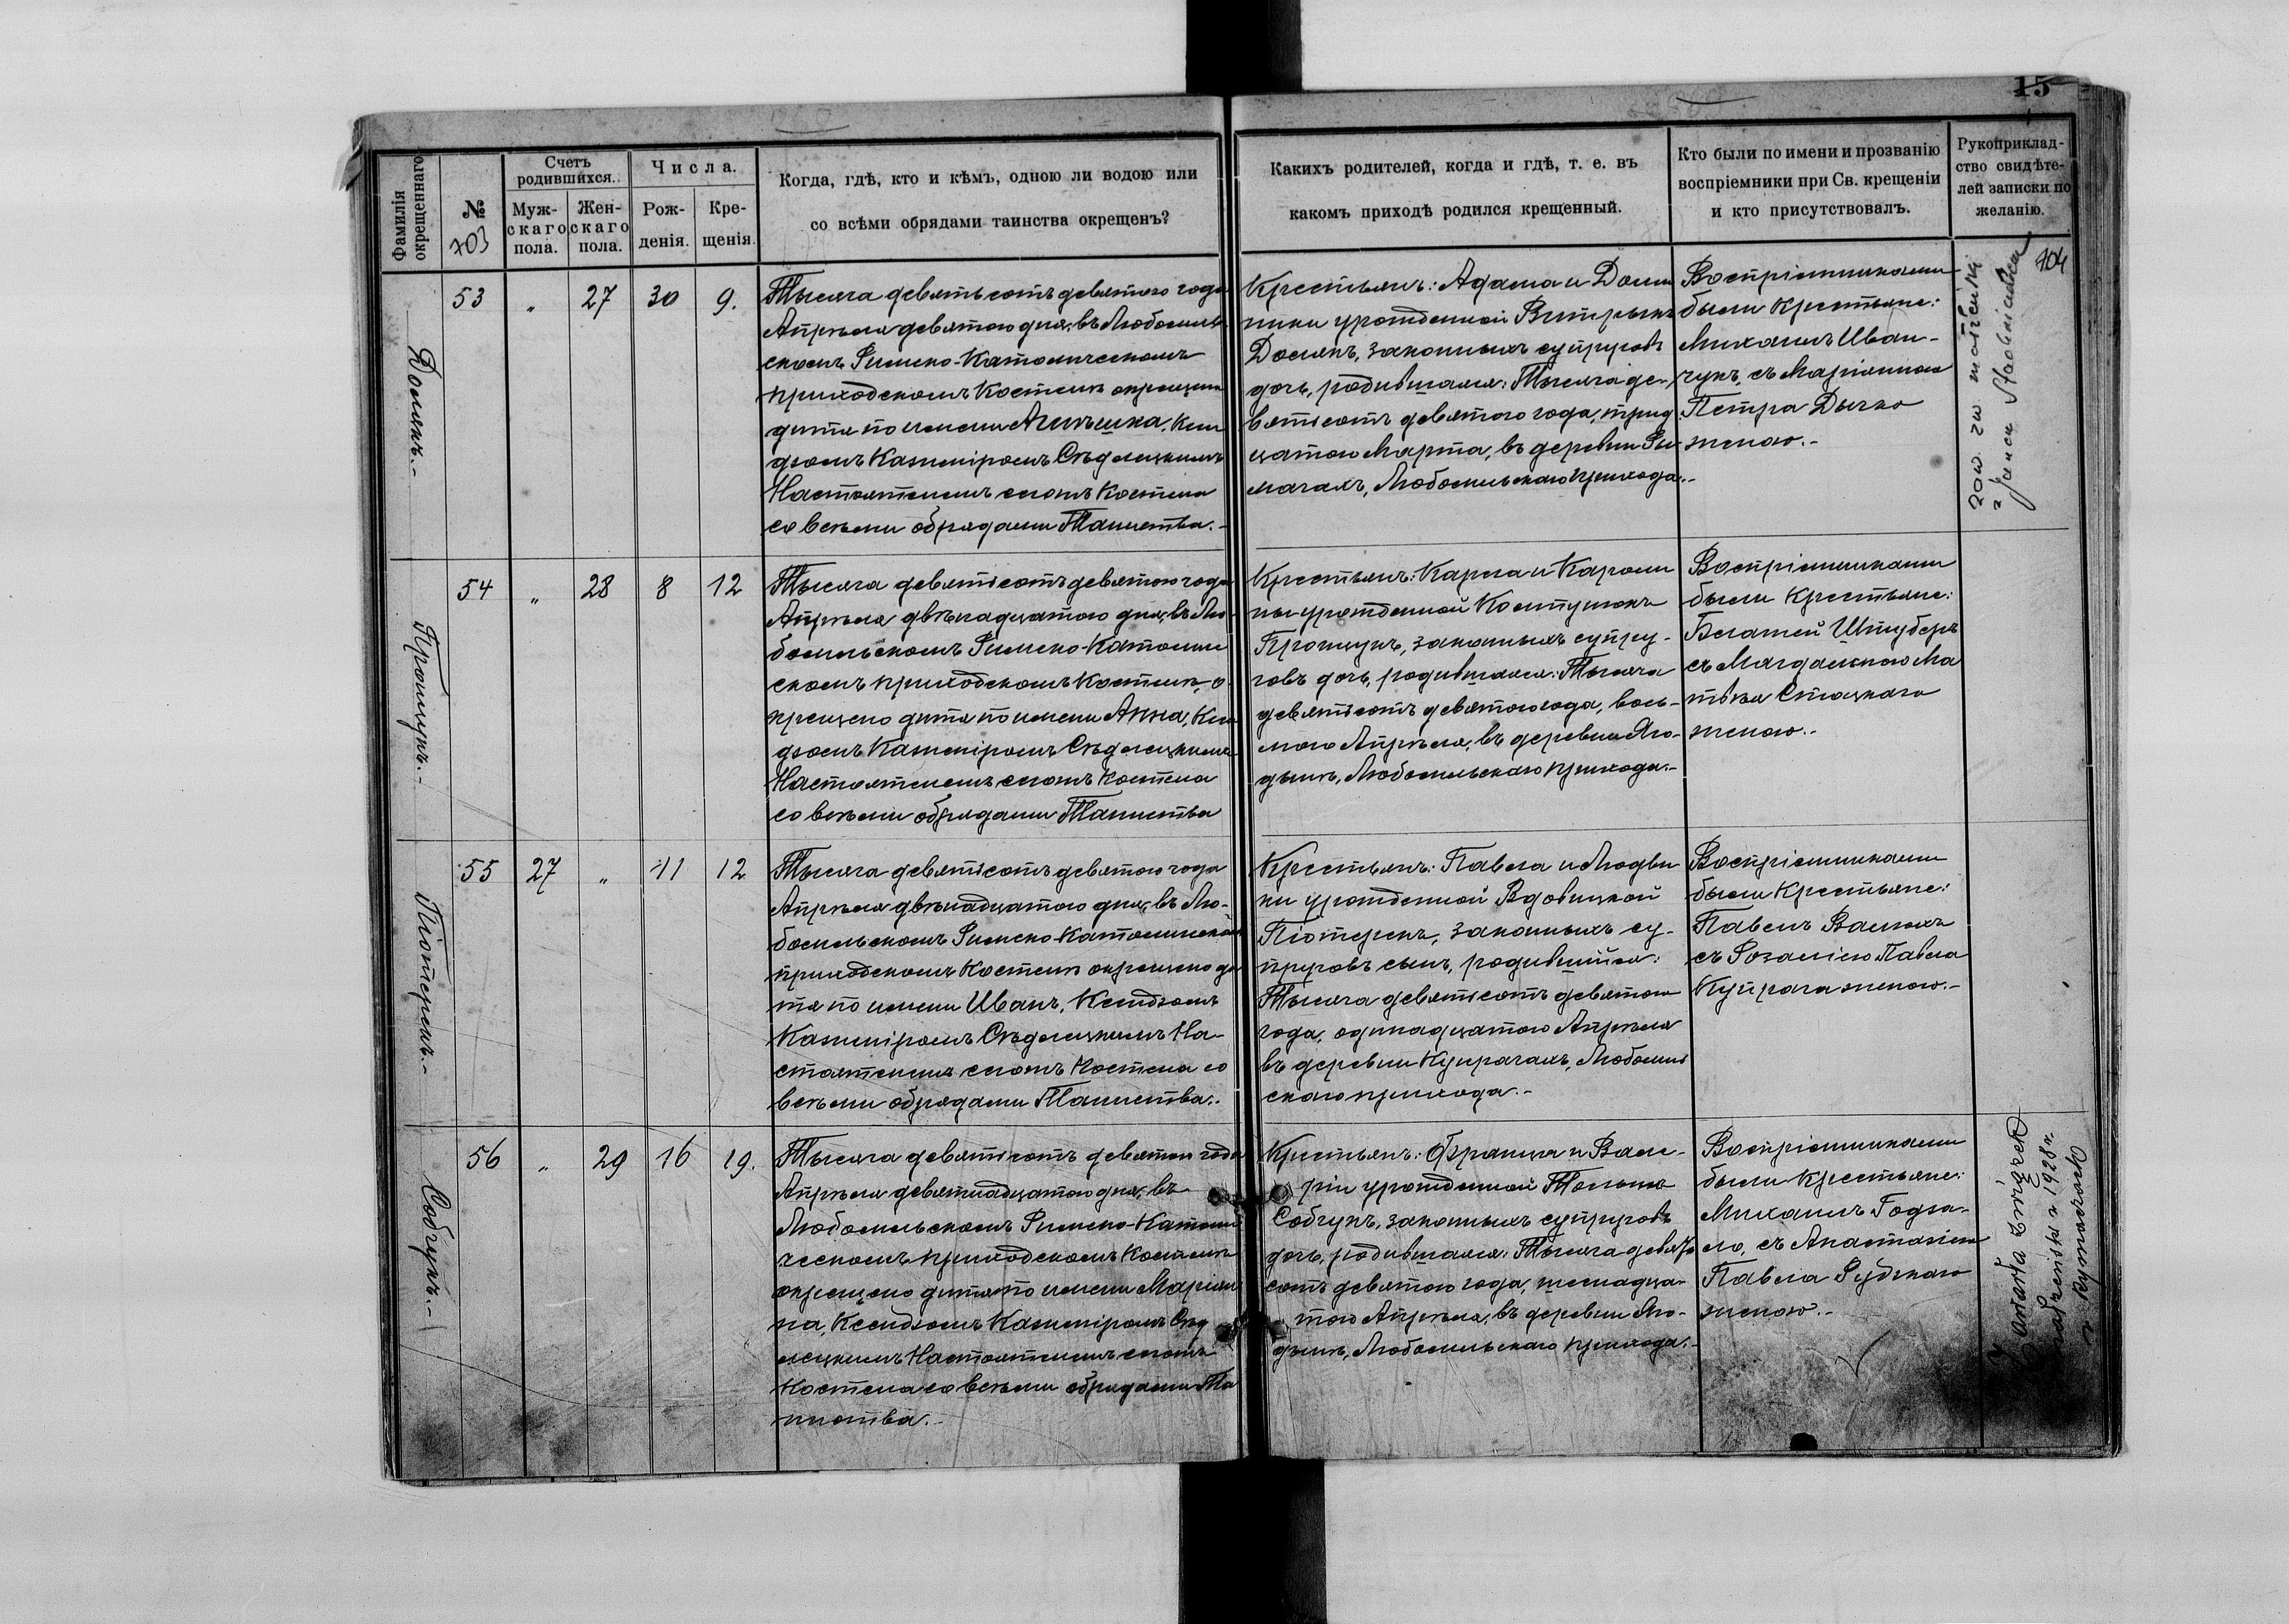 15
Фамилія окрещеннаго
№
703
Счетъ родившихся.
Муж-
скаго
пола.
Жен-
скаго
пола.
Числа.
Рож-
денія.
Кре-
щенія.
Когда, гдѣ, кто и кѣмъ, одною ли водою или
со всѣми обрядами таинства окрещенъ?
Каких­ъ родителей, когда и гдѣ, т. е. въ
какомъ приходѣ родился крещенный.
Кто были по имени и прозванію
воспріемники при Св. крещеніи
и кто присутствовалъ.
Рукоприклад-
ство свидѣте-
лей записки по
желанію.
704
Досякъ.-
53 " 27 30 9.
Тысяча девятьсотъ девятого года
Апрѣля девятого дня, въ Любомль-
скомъ Римско-Католическомъ
приходскомъ Костелѣ окрещено
дитя по имени Агнѣшка, Ксен
дзомъ Казиміромъ Сѣдлецкимъ
Настоятелемъ сногожъ Костела
со всѣми обрядами Таинства.-
Крестьянъ: Адама и Доми
ники урожденной
Досякъ, законныхъ супруговъ
дочь, родившаяся: Тысяча де-
вятьсотъ девятого года, трид
цатого Марта, въ деревни Ры
мачахъ, Любомльскаго прихода.-
Воспріемниками
были Крестьяне:
Михаилъ Иван-
чукъ, съ Маріанною
Петра Дычко
женою.-
zaw. zw małżeński
z Janem
Процукъ.-
54 " 28 8 12
Тысяча девятьсотъ девятого года
Апрѣля двѣнадцатого дня, въ Лю-
бомльскомъ Римско-Католиче
скомъ приходскомъ Костелѣ, о-
крещено дитя по имени Анна, Ксен
дзомъ Казиміромъ Сѣдлецкимъ
Настоятелемъ сногожъ Костела
со всѣми обрядами Таинства
Крестьянъ: Карла и Кароли
ны урожденной
Процукъ, законныхъ супру-
говъ дочь, родившаяся: Тысяча
девятьсотъ девятого года, вось-
мого Апрѣля, въ деревни Яго-
дынѣ, Любомльскаго прихода.-
Воспріемниками
были Крестьяне:
Блажей Штуберъ
съ Магдаленою Ма
твѣя Стацкаго
женою.-
Піотерекъ.-
55 27 " 11 12
Тысяча девятьсотъ девятого года
Апрѣля двѣнадцатого дня, въ Лю-
бомльскомъ Римско-Католическомъ
приходскомъ Костелѣ окрещено ди
тя по имени Иванъ, Ксендзомъ
Казиміромъ Сѣдлецкимъ На-
стоятелемъ сногожъ Костела со
всѣми обрядами Таинства.
Крестьянъ: Павла и Людви
ки урожденной Вдовицкой
Піотерекъ, законныхъ су-
пруговъ сынъ, родившійся:
Тысяча девятьсотъ девятого
года, одинадцатого Апрѣля
въ деревни Купрачахъ, Любомль
скаго прихода.-
Воспріемниками
были Крестьяне:
Павелъ
съ Розаліею Павла
Купрача женою.-
Собчукъ.-
56 " 29 16 19.
Тысяча девятьсотъ девятого года
Апрѣля девятнадцатого дня, въ
Любомльскомъ Римско-Католи
ческомъ приходскомъ Костелѣ
окрещено дитя по имени Маріан
на, Ксендзомъ Казиміромъ Сѣд
лецкимъ Настоятелемъ сногожъ
Костела со всѣми обрядами Та
инства.-
Крестьянъ: Франца и Вале-
ріи урожденной
Собчукъ, законныхъ супруговъ
дочь, родившаяся: Тысяча девять
сотъ девятого года, шеснадца-
того Апрѣля, въ деревни Яго-
дынѣ, Любомльскаго прихода.-
Воспріемниками
были Крестьяне:
Михаилъ Годза-
ло, съ Анастазіею
Павла Рудзкаго
женою.-
Zawarła związek
małżeński r. 1928 r.
w Rymaczach